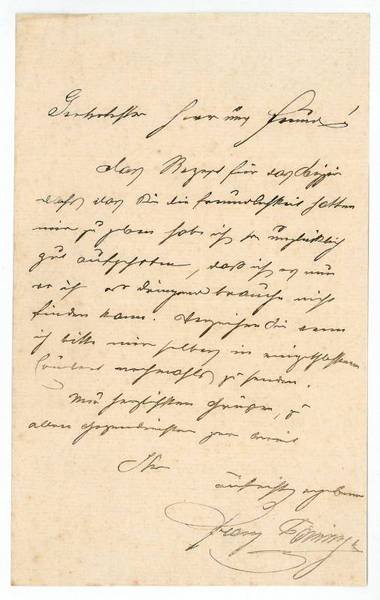 Geehrtester Herr und Freund!
Das Rezept für das
daß Sie die Freundlichkeit hatten
mir zu geben habe ich so unglücklich
gut aufgehoben, daß ich es nun
wo ich es dringend brauche nicht
finden kann. Verzeihen Sie wenn
ich bitte mir selbes in
nochmals zu senden.
Mit herzlichsten Grüßen, zu
allen Gegendiensten gern bereit
Ihr
aufrichtig ergebener
Franz